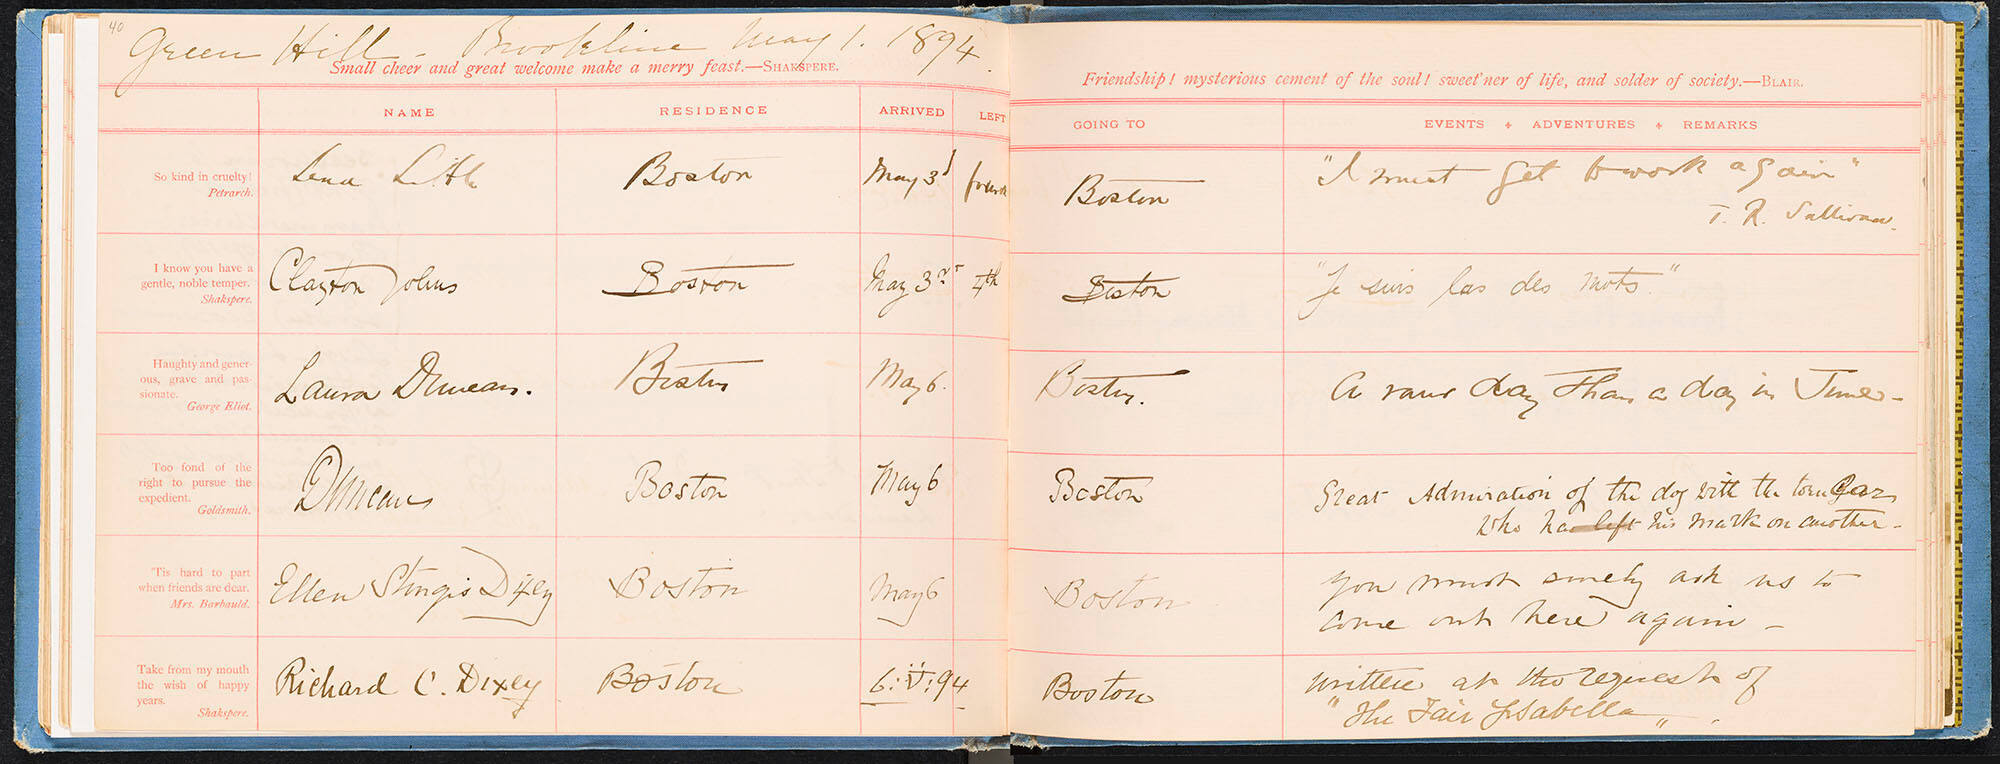 40
Green Hill - Brookline May 1. 1894.
Small cheer and great welcome make a merry feast.—SHAKSPERE.
Friendship! mysterious cement of the soul! sweet'ner of life, and solder of society.—BLAIR.
NAME RESIDENCE ARRIVED LEFT GOING TO EVENTS + ADVENTURES + REMARKS
So kind in cruelty!
Petrarch.
Lena Little Boston May 3d Boston "I must get to work again"
T. R. Sullivan.
I know you have a
gentle, noble temper.
Shakspere.
Clayton Johns Boston May 3rd 4th Boston "Je suis las des mots."
Haughty and gener-
ous, grave and pas-
sionate.
George Eliot.
Laura Duncan. Boston May 6. Boston. A rarer day than a day in June -
Too fond of the
right to pursue the
expedient.
Goldsmith.
Duncan Boston May 6 Boston Great Admiration of the dog with the torn Ear
who has left his mark on another -
'Tis hard to part
when friends are dear.
Mrs. Barbauld.
Ellen Sturgis Dixey Boston May 6 Boston You must surely ask us to
come out here again -
Take from my mouth
the wish of happy
years.
Shakspere.
Richard C. Dixey Boston 6:V:94 Boston written at the request of
"The Fair Isabella".